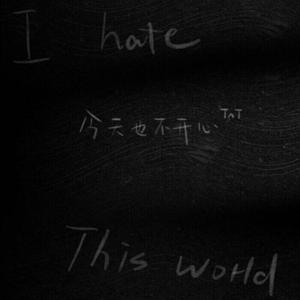 I hate
今天也不开心TAT
This world